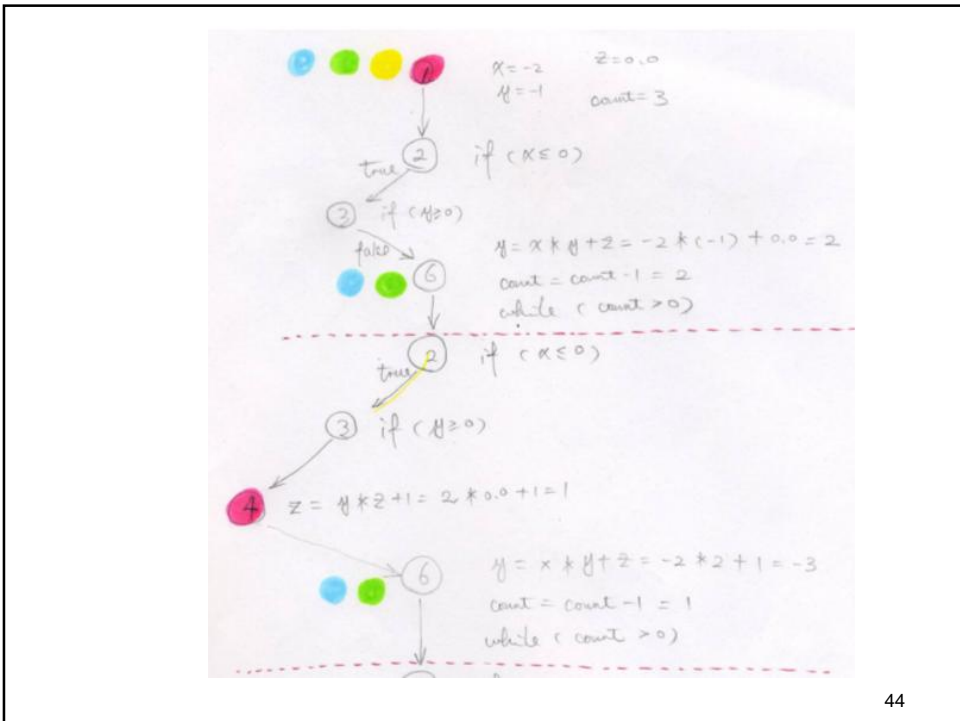 1 x = -2 z = 0.0
y = -1 count = 3
2 if (x ≤ 0)
true
3 if (y ≥ 0)
false
y = x * y + z = -2 * (-1) + 0.0 = 2
6 count = count - 1 = 2
while (count > 0)
2 if (x ≤ 0)
true
3 if (y ≥ 0)
4 z = y * z + 1 = 2 * 0.0 + 1 = 1
6 y = x * y + z = -2 * 2 + 1 = -3
count = count - 1 = 1
while (count > 0)
44